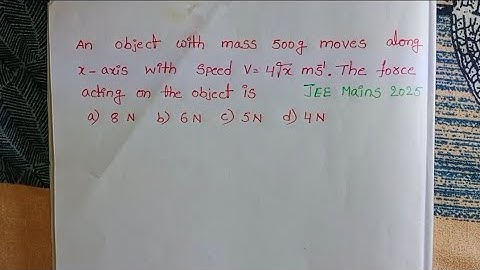 An object with mass 500g moves along
x-axis with speed V = 4√x ms⁻¹. The force
acting on the object is JEE Mains 2025
a) 8 N b) 6 N c) 5 N d) 4 N